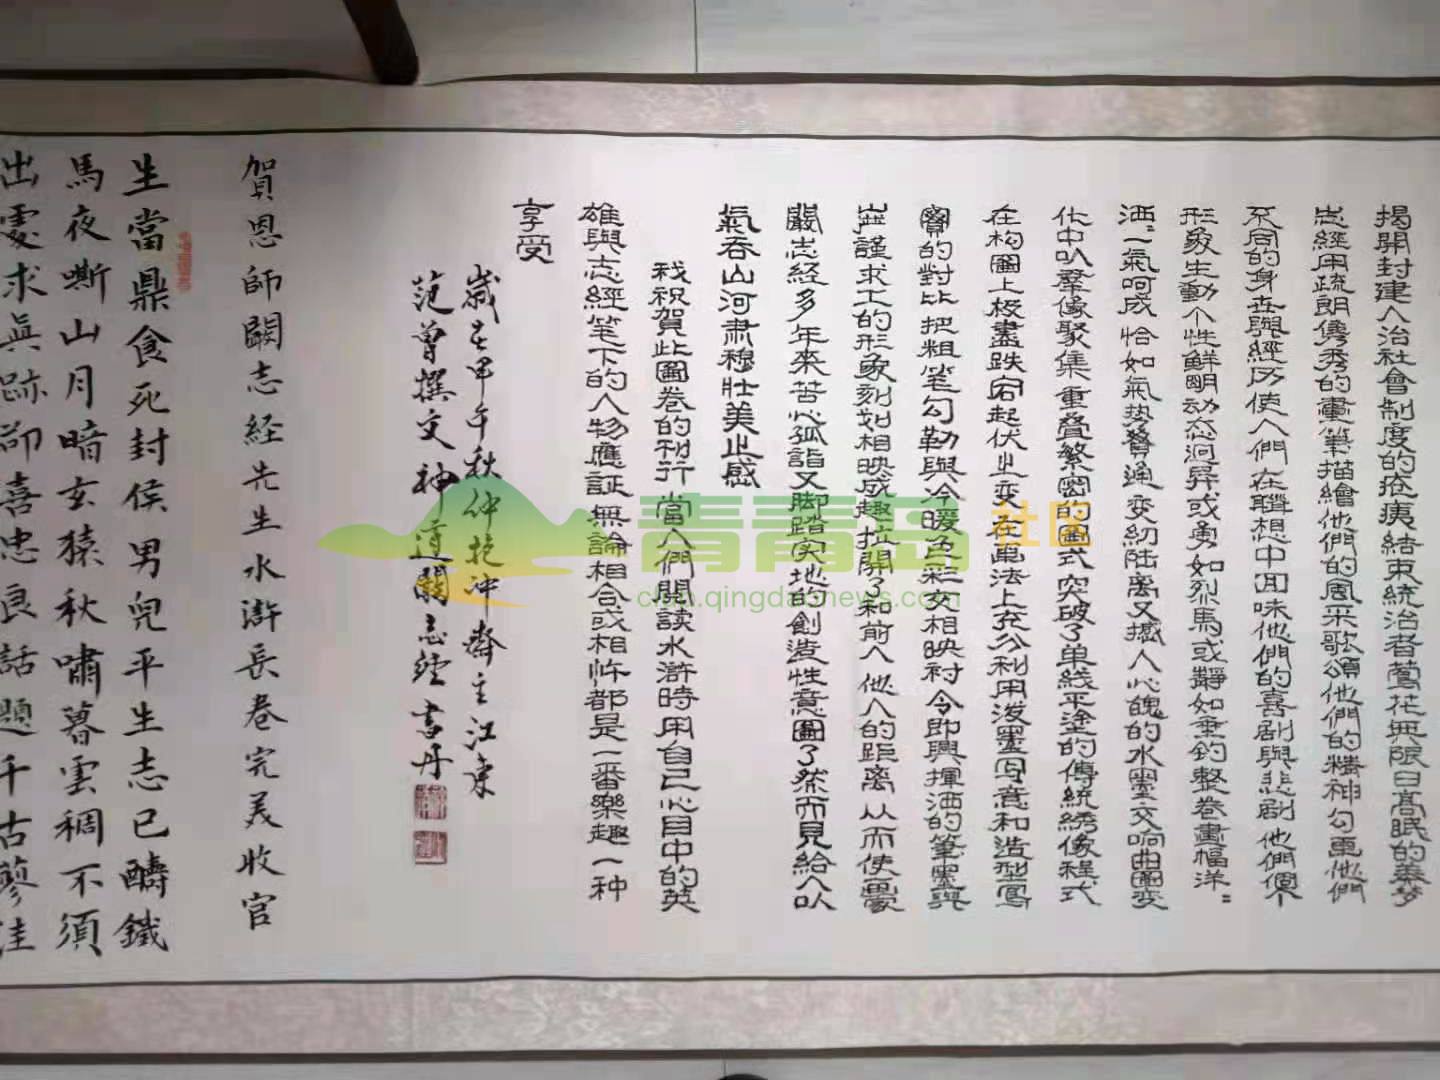 揭開封建人治社會制度的疮痍結束統治者鶯花無限日高眠的美梦
志經用疏朗儁秀的畫筆描繪他們的風采歌頌他們的精神勾画他們
不同的身世與經历使人們在聯想中回味他們的喜剧與悲剧他們個个
形象生動个性鮮明动态迥异或勇如烈馬或静如垂釣整卷畫幅洋〻
洒〻一氣呵成恰如氣势聲通变幻陆離又撼人心魄的水墨交响曲圖变
化中以羣像聚集重叠繁密的圖式突破了单线平塗的傳統绣像程式
在构圖上极盡跌宕起伏之变在画法上充分利用泼墨写意和造型寫
實的對比把粗笔勾勒與冷暖色彩交相映衬令即興揮洒的筆墨與
严謹求工的形象刻划相映成趣拉開了和前人他人的距离从而使畫
闞志經多年來苦心孤詣又脚踏实地的創造性意圖了然而見給人以
氣吞山河肃穆壮美之感
我祝賀此圖卷的刊行當人們閱读水滸時用自己心目中的英
雄與志經笔下的人物應証無論相合或相忤都是一番樂趣一种
享受
歲在甲午秋仲抱沖齋主江東
范曾撰文神道闞志經書丹
賀恩師闞志経先生水滸長卷完美收官
生當鼎食死封侯男兒平生志已酬鐵
馬夜嘶山月暗玄猿秋嘯暮雲稠不須
出處求真跡却喜忠良話題千古蓼洼
青青岛社区
club.qingdaonews.com